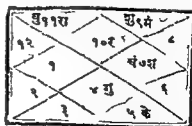 शु११रा शु९मं
१२ १०र ८
१ चं७श
२ ४गु ६
३ ५के